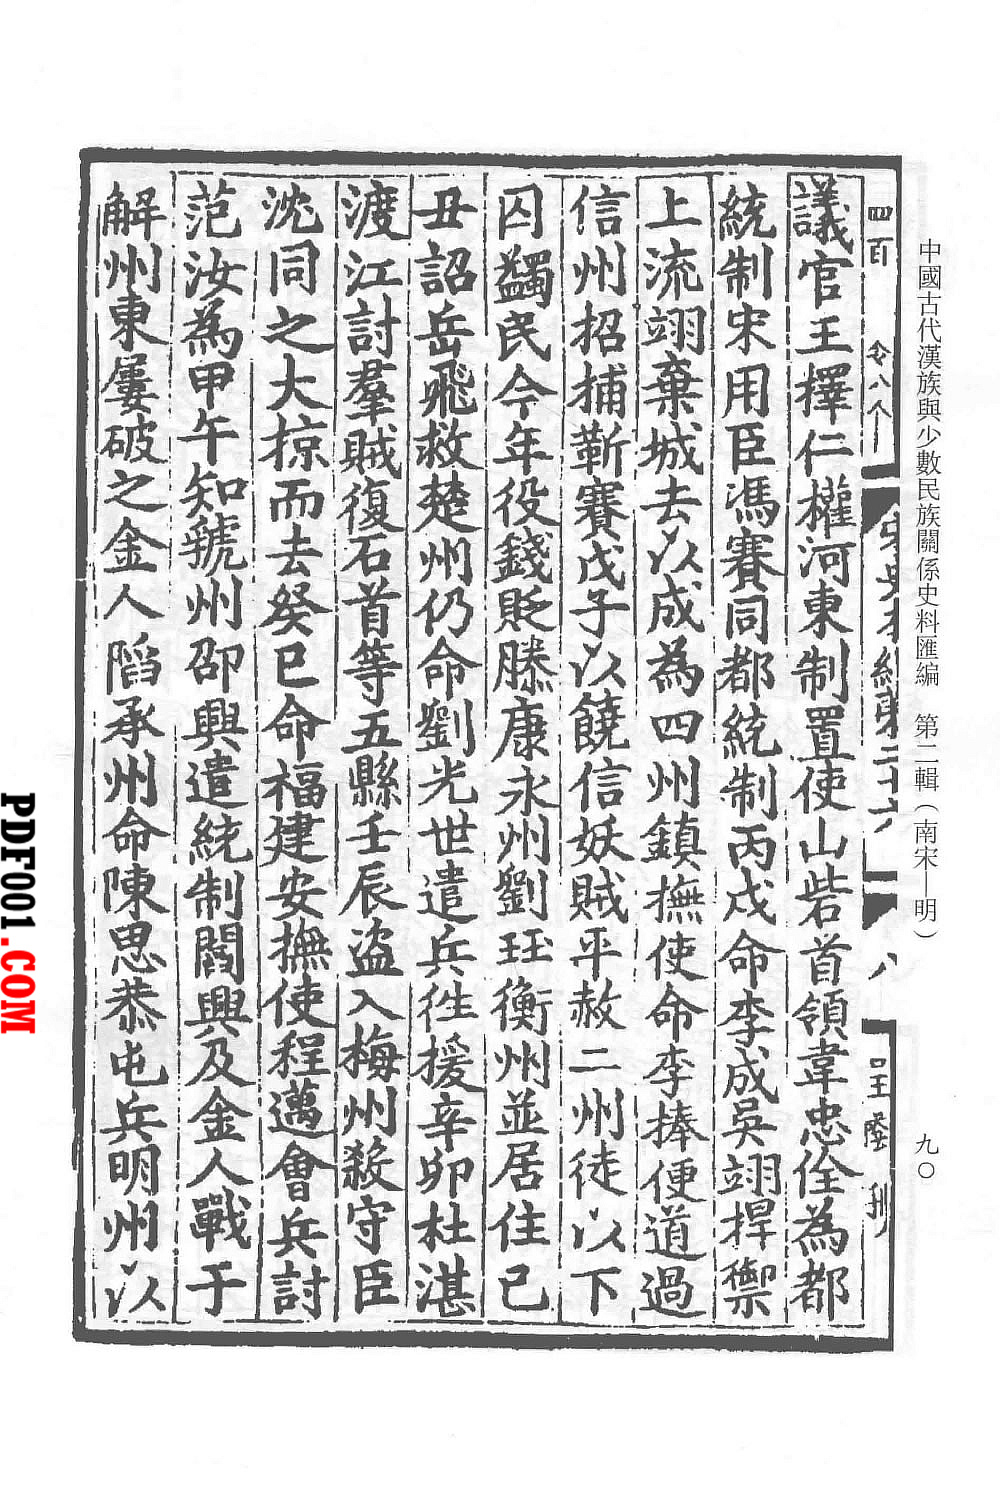 中國古代漢族與少數民族關係史料匯編　第二輯（南宋—明）
九〇
四百
宋史本紀第二十六
八
議官王擇仁權河東制置使山砦首領韋忠佺為都
統制宋用臣馮賽同都統制丙戌命李成吳翊捍禦
上流翊棄城去以成為四州鎮撫使命李捧便道過
信州招捕靳賽戊子以饒信妖賊平赦二州徒以下
囚蠲民今年役錢貶滕康永州劉珏衡州並居住己
丑詔岳飛救楚州仍命劉光世遣兵往援辛卯杜湛
渡江討羣賊復石首等五縣壬辰盜入梅州殺守臣
沈同之大掠而去癸巳命福建安撫使程邁會兵討
范汝為甲午知虢州邵興遣統制閻興及金人戰于
解州東屢破之金人陷承州命陳思恭屯兵明州以
PDF001.COM